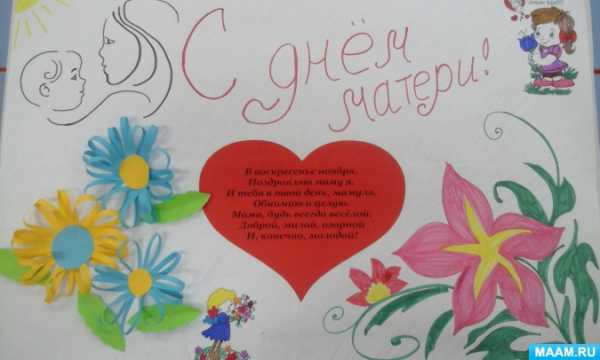 С днём
матери!
В воскресенье ноября,
Поздравляю маму я.
И тебя в твой день, мамуля,
Обнимаю и целую.
Мама, будь всегда весёлой,
Доброй, милой, озорной
И, конечно, молодой!
MAAM.RU